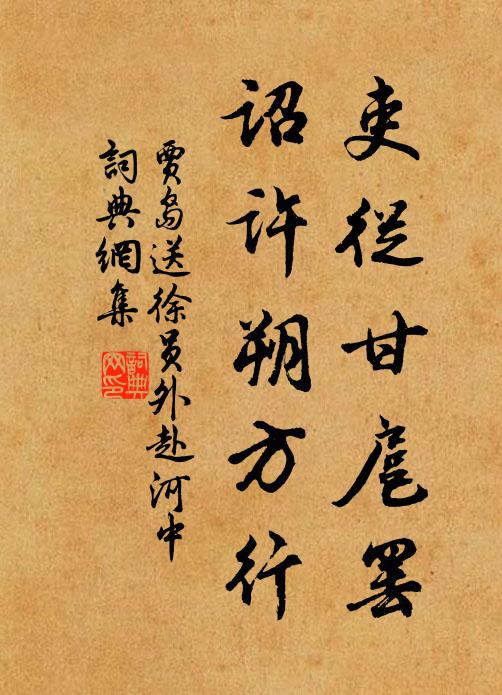 吏從甘扈罷
詔許朔方行
賈島送徐員外赴河中
詞典網集
詞典
网印